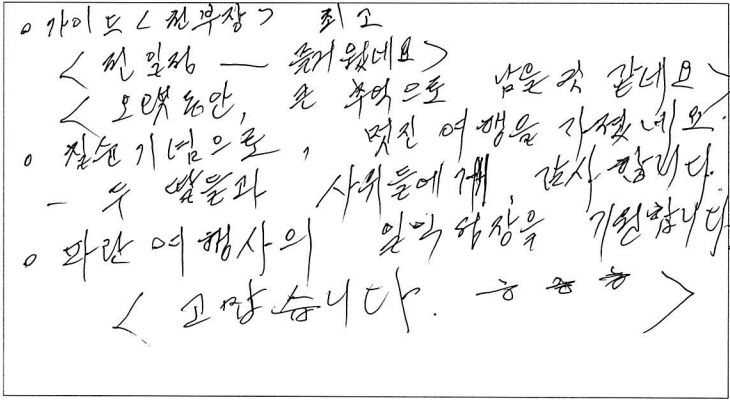 ◦ 가이드 <전부장> 최고
<전 일정 — 즐거웠네요>
<오랫동안, 큰 추억으로 남을 것 같네요>
◦ 칠순기념으로, 멋진 여행을 가졌네요.
- 두 딸들과 사위들에게, 감사합니다.
◦ 파란여행사의 일익 성장을 기원합니다
<고맙습니다. ㅎㅎㅎ>